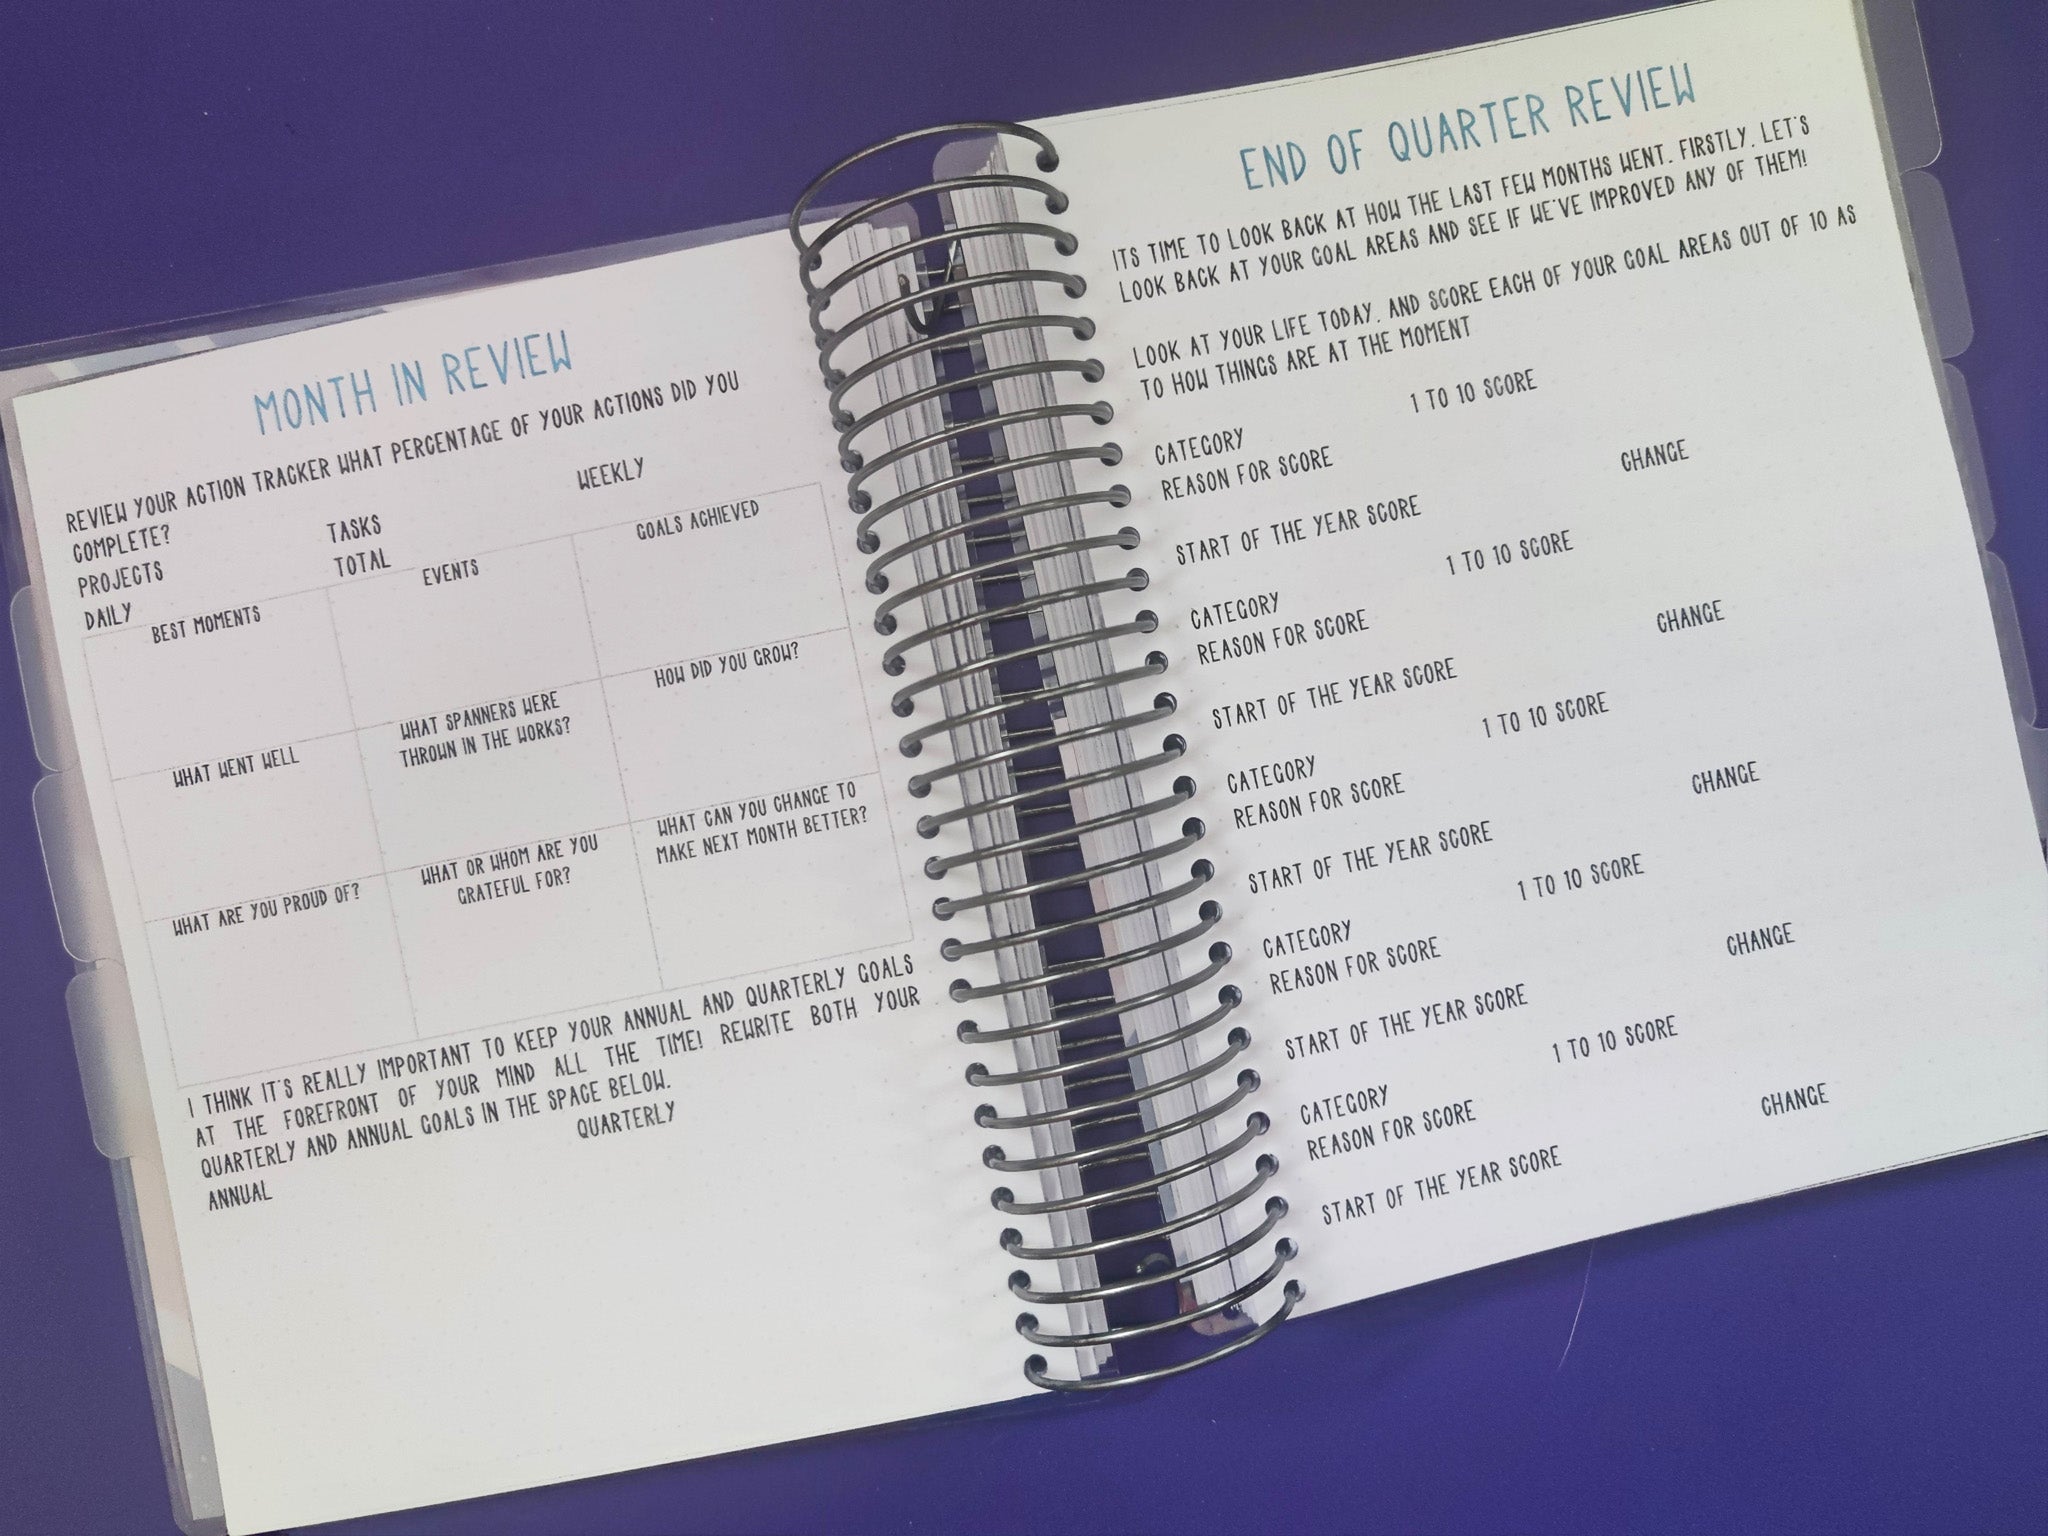 MONTH IN REVIEW
REVIEW YOUR ACTION TRACKER WHAT PERCENTAGE OF YOUR ACTIONS DID YOU
COMPLETE?
TASKS
WEEKLY
PROJECTS
TOTAL
DAILY
BEST MOMENTS
EVENTS
GOALS ACHIEVED
WHAT WENT WELL
WHAT SPANNERS WERE
THROWN IN THE WORKS?
HOW DID YOU GROW?
WHAT ARE YOU PROUD OF?
WHAT OR WHOM ARE YOU
GRATEFUL FOR?
WHAT CAN YOU CHANGE TO
MAKE NEXT MONTH BETTER?
I THINK IT'S REALLY IMPORTANT TO KEEP YOUR ANNUAL AND QUARTERLY GOALS
AT THE FOREFRONT OF YOUR MIND ALL THE TIME! REWRITE BOTH YOUR
QUARTERLY AND ANNUAL GOALS IN THE SPACE BELOW.
ANNUAL
QUARTERLY
END OF QUARTER REVIEW
ITS TIME TO LOOK BACK AT HOW THE LAST FEW MONTHS WENT. FIRSTLY, LET'S
LOOK BACK AT YOUR GOAL AREAS AND SEE IF WE'VE IMPROVED ANY OF THEM!
LOOK AT YOUR LIFE TODAY, AND SCORE EACH OF YOUR GOAL AREAS OUT OF 10 AS
TO HOW THINGS ARE AT THE MOMENT
CATEGORY
1 TO 10 SCORE
REASON FOR SCORE
START OF THE YEAR SCORE
CHANGE
CATEGORY
1 TO 10 SCORE
REASON FOR SCORE
START OF THE YEAR SCORE
CHANGE
CATEGORY
1 TO 10 SCORE
REASON FOR SCORE
START OF THE YEAR SCORE
CHANGE
CATEGORY
1 TO 10 SCORE
REASON FOR SCORE
START OF THE YEAR SCORE
CHANGE
CATEGORY
1 TO 10 SCORE
REASON FOR SCORE
START OF THE YEAR SCORE
CHANGE